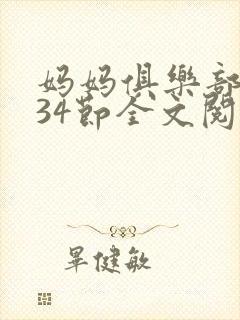 妈妈俱樂部
34節全文閱
畢健敏